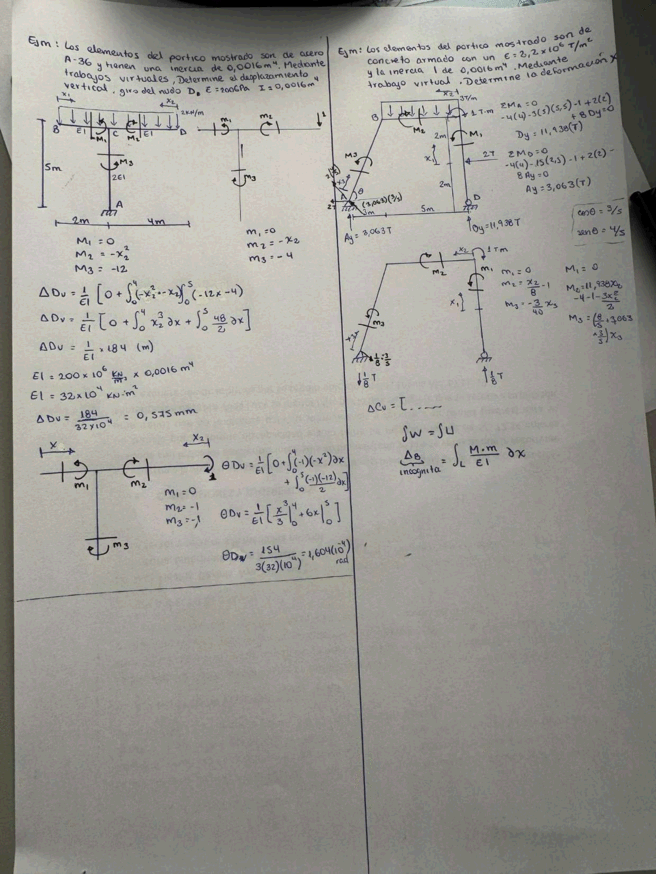 Ejm: Los elementos del portico mostrado son de acero
A-36 y tienen una inercia de 0,0016m⁴. Mediante
trabajos virtuales, Determine el desplazamiento
vertical, giro del nudo D. E=200GPa I=0,0016m⁴
x₁
x₂
2KN/m
B
E1
M₁
C
M₂
E1
D
M₃
2E1
5m
A
2m
4m
M₁ = 0
M₂ = -x₂²
M₃ = -12
m₁
m₂
1
m₃
m₁ = 0
m₂ = -x₂
m₃ = -4
ΔDv = 1/E1 [0 + ∫₀⁴(-x₂²·-x₂) ∫₀⁵(-12x-4)
ΔDv = 1/E1 [0 + ∫₀⁴ x₂³ ∂x + ∫₀⁵ 48/2 ∂x]
ΔDv = 1/E1 × 184 (m)
E1 = 200×10⁶ KN/m² × 0,0016m⁴
E1 = 32×10⁴ KN·m²
ΔDv = 184/32×10⁴ = 0,575mm
x
x₂
m₁
m₂
1
m₃
m₁ = 0
m₂ = -1
m₃ = -1
θDv = 1/E1 [0+∫₀⁴(-1)(-x²)∂x
+ ∫₀⁵ (-1)(-12)/2 ∂x]
θDv = 1/E1 [x³/3 |₀⁴ + 6x |₀⁵]
θDv = 154/3(32)(10⁴) = 1,604(10⁻⁴)
rad
Ejm: Los elementos del portico mostrado son de
concreto armado con un E=2,2×10⁶ T/m²
y la inercia I de 0,0016m⁴. Mediante
trabajo virtual. Determine la deformación x
x₂
3T/m
B
M₂
1T·m
M₁
2m
x₁
2T
2m
M₃
θ
A
(3,063)(3/5)
3m
5m
D
Ay=3,063T
Dy=11,938T
ΣMA=0
-4(4)-3(5)(5,5)-1+2(2)
+8Dy=0
Dy=11,938(T)
ΣMD=0
-4(4)-15(2,5)-1+2(2)-
8Ay=0
Ay=3,063(T)
cosθ=3/5
senθ=4/5
m₂
x₂
1T·m
m₁
x₁
m₃
1/8·3/5
1/8 T
1/8 T
m₁=0
m₂=x₂/8-1
m₃=-3/40 x₃
M₁=0
M₂=11,938x₂
-4-1-3x₂²/2
ΔCv = [......
∫W = ∫U
ΔB = ∫L M·m/E1 ∂x
incognita